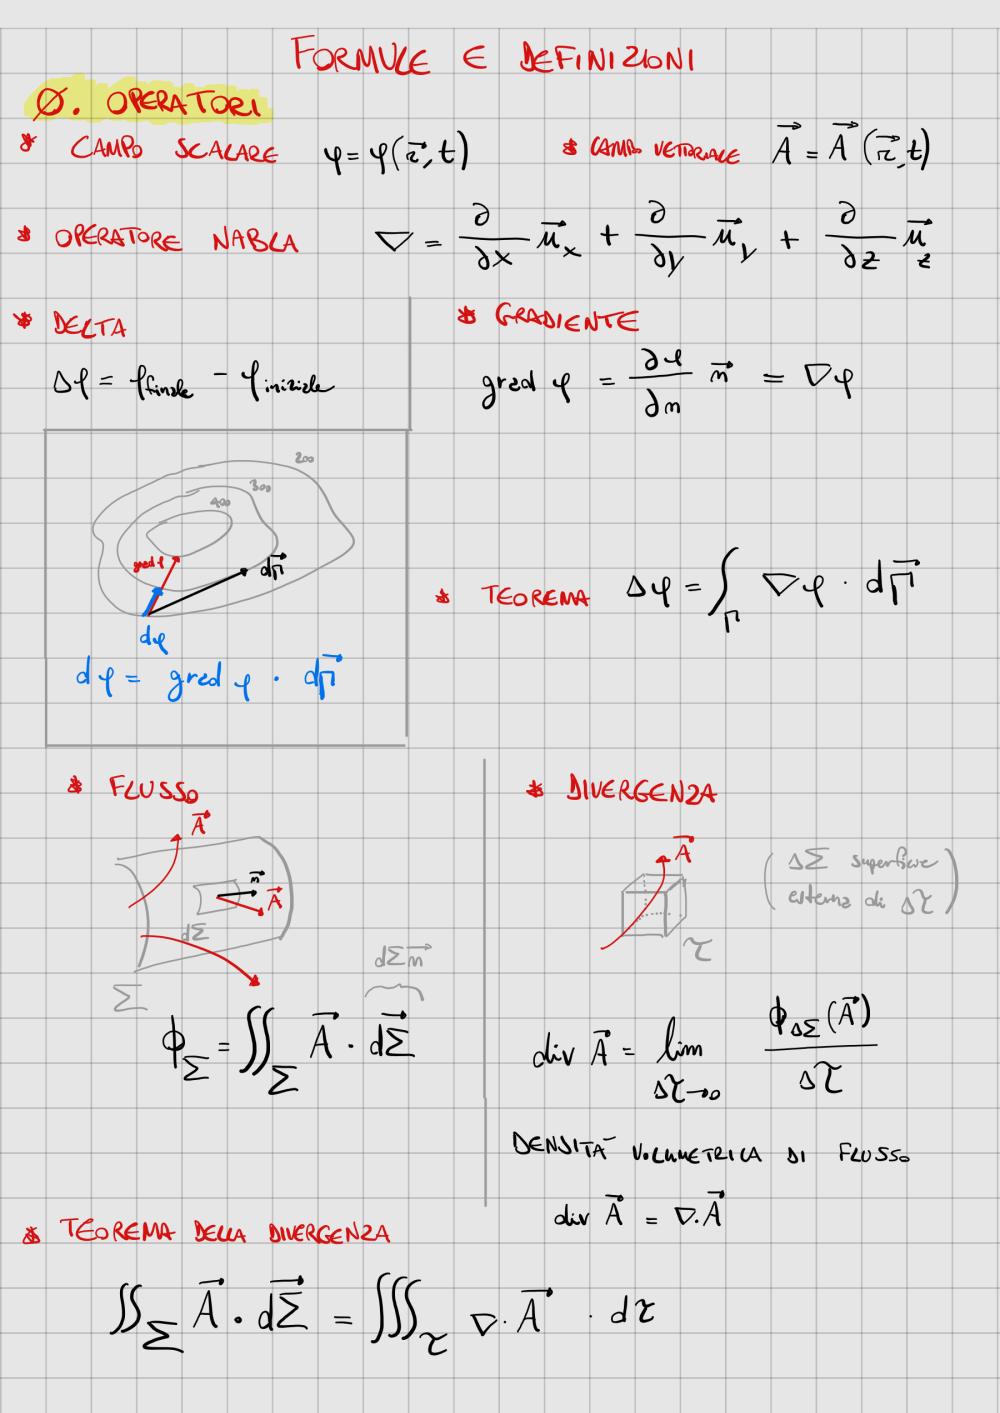 FORMULE E DEFINIZIONI
Ø. OPERATORI
* CAMPO SCALARE φ = φ(r⃗, t)
* CAMPO VETTORIALE A⃗ = A⃗(r⃗, t)
* OPERATORE NABLA ∇ = ∂/∂x u⃗_x + ∂/∂y u⃗_y + ∂/∂z u⃗_z
* DELTA
Δφ = φ_finale − φ_iniziale
* GRADIENTE
grad φ = ∂φ/∂n n⃗ = ∇φ
200
300
400
grad φ
dΓ⃗
dφ
dφ = grad φ · dΓ⃗
* TEOREMA Δφ = ∫_Γ ∇φ · dΓ⃗
* FLUSSO
A⃗
n⃗
A⃗
dΣ
Σ
dΣ n⃗
ϕ_Σ = ∬_Σ A⃗ · dΣ⃗
* DIVERGENZA
A⃗
τ
(ΔΣ superficie
esterna di Δτ)
div A⃗ = lim_Δτ→0 ϕ_ΔΣ(A⃗)/Δτ
DENSITÀ VOLUMETRICA DI FLUSSO
div A⃗ = ∇·A⃗
* TEOREMA DELLA DIVERGENZA
∬_Σ A⃗ · dΣ⃗ = ∭_τ ∇·A⃗ · dτ